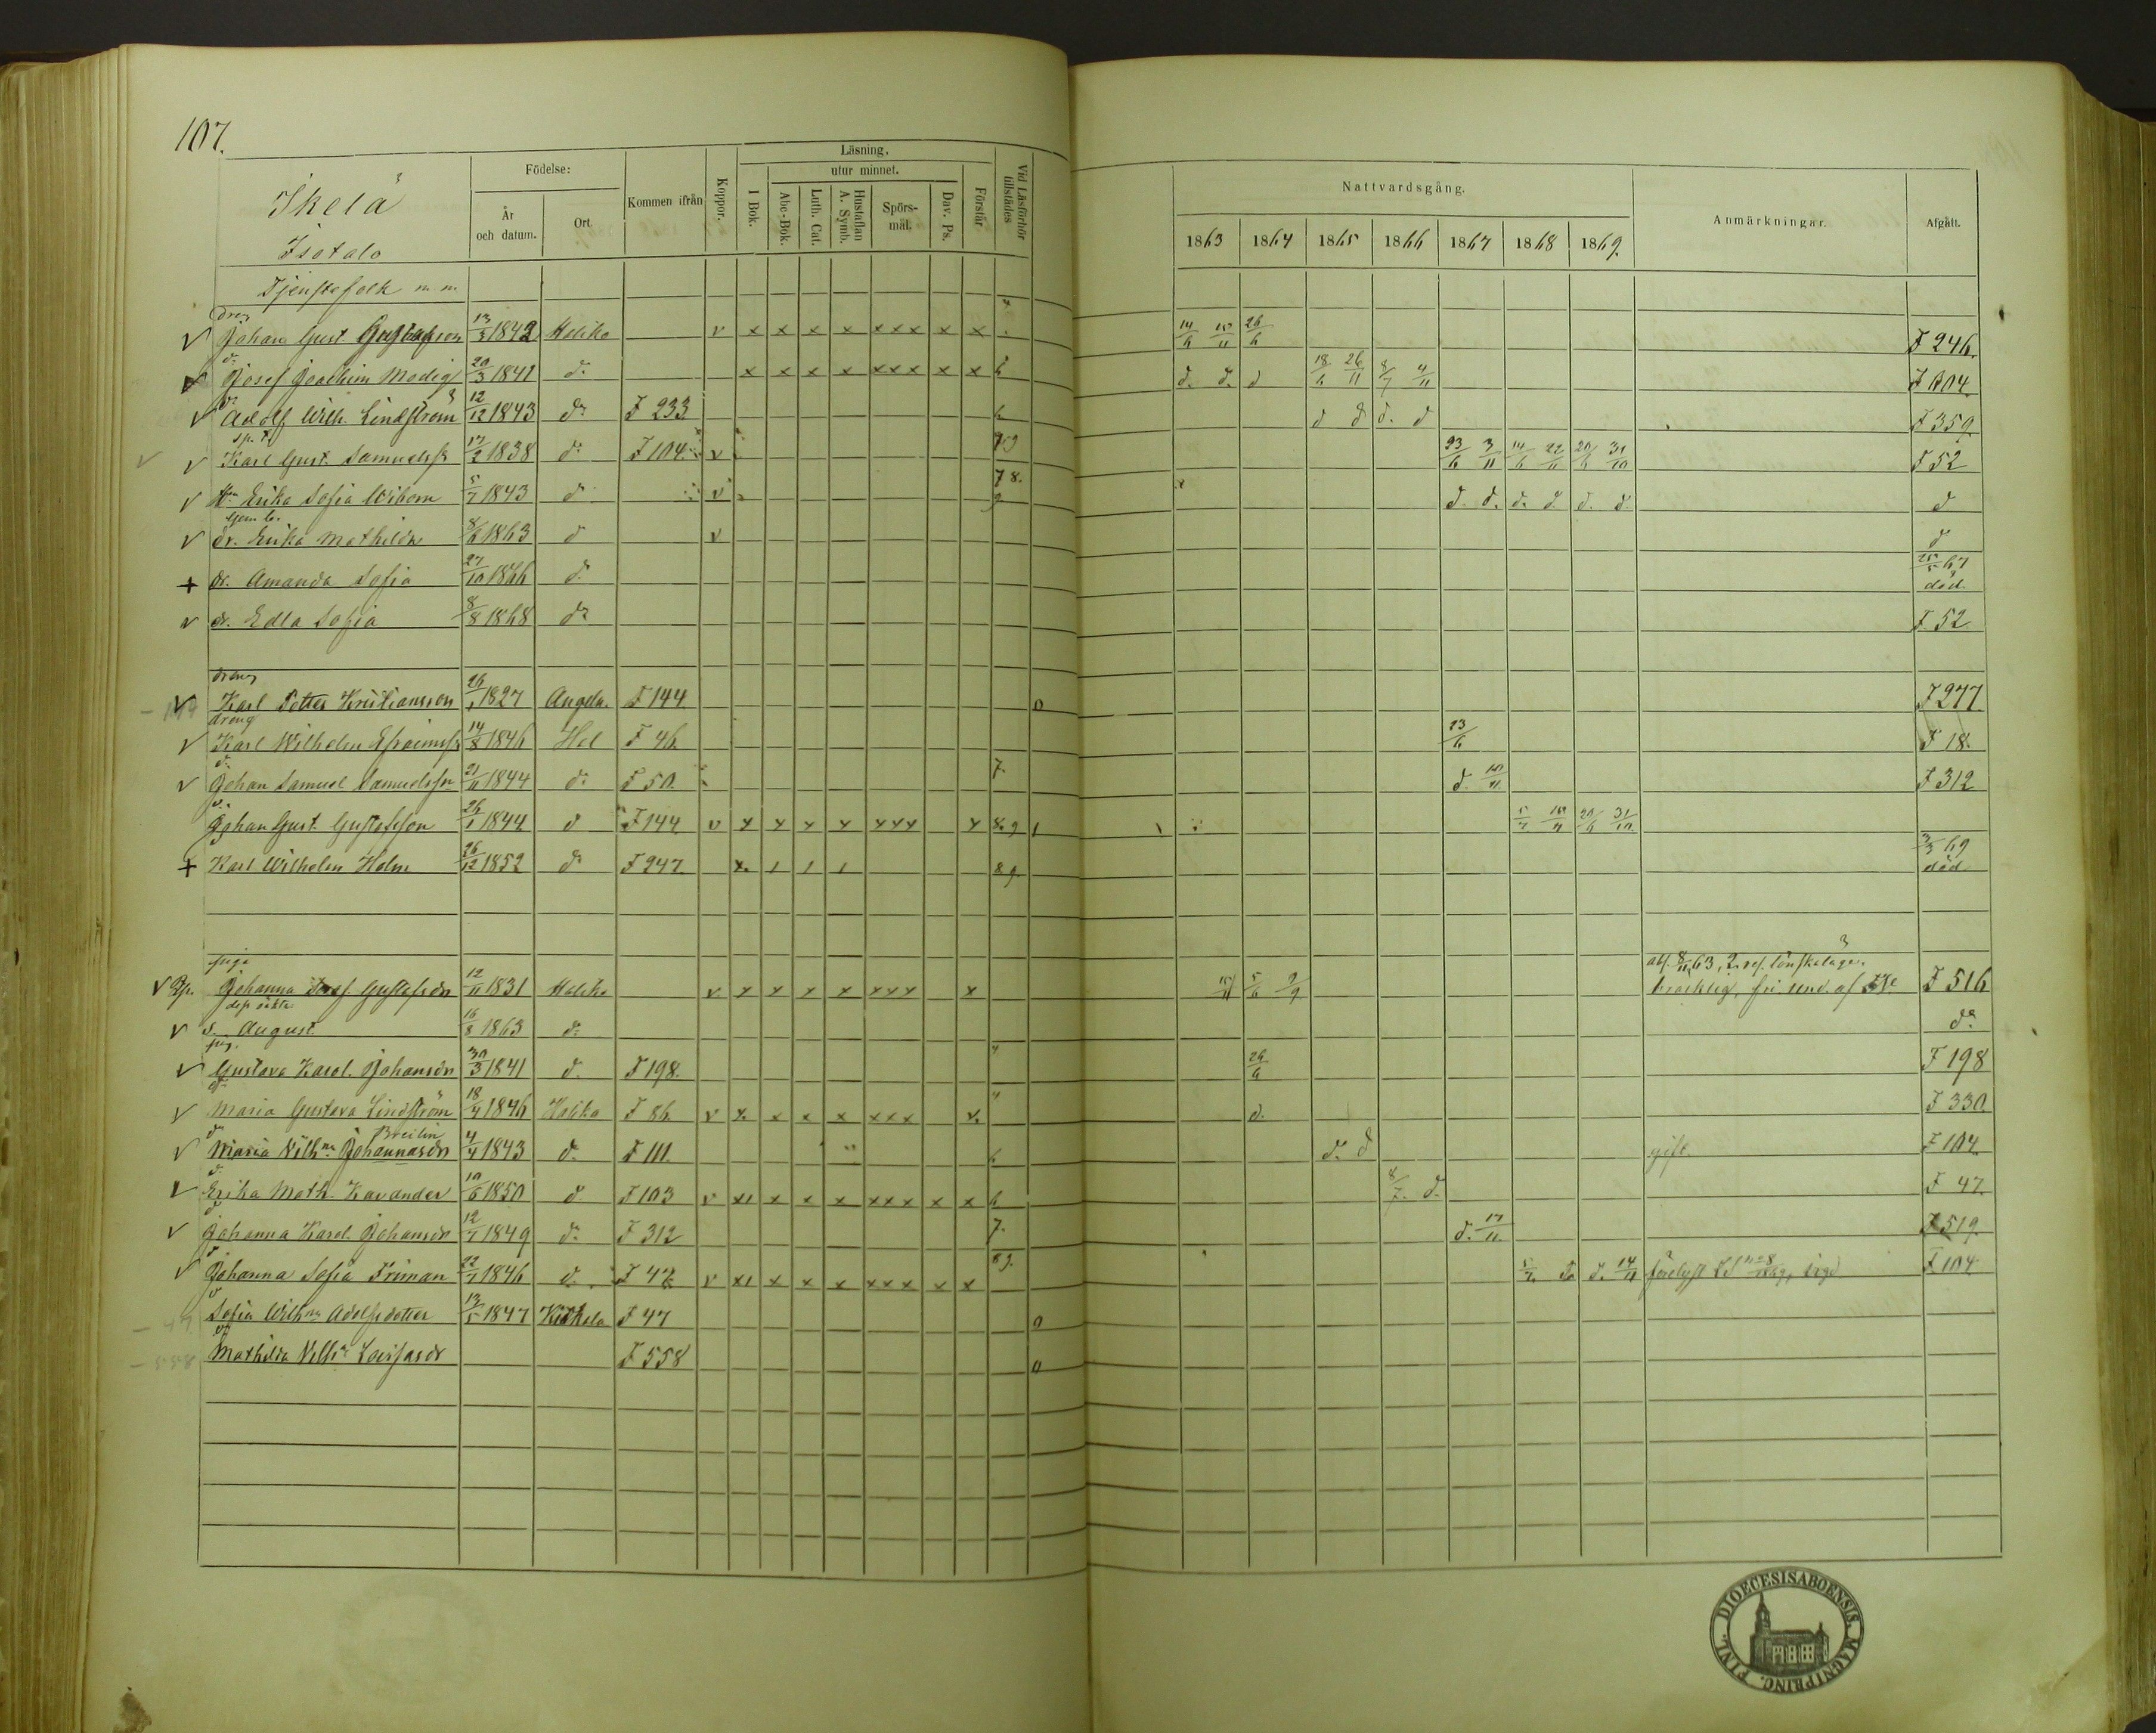 107.
Ikelä
Isotalo
Födelse:
År och datum.
Ort.
Kommen ifrån
Koppor.
Läsning.
utur minnet.
I Bok.
Abc-Bok.
Luth. Cat.
Hustaflan A. Symb.
Spörsmål.
Dav. Ps.
Förstår
Vid Läsförhör tillstädes
Nattvardsgång.
1863 1864 1865 1866 1867 1868 1869.
Anmärkningar.
Afgått.
Tjenstefolk m m
dreng
Johan Gust. Gustafsson 13/3 1842 Haliko v x x x x xxx x x 14/6 15/11 26/6 F 246.
do
Josef Joachim Modig 20/3 1841 do x x x x xxx x x 6 d. d. d 18/6 26/11 8/7 4/11 F 104.
do
Adolf Wilh. Lindström 12/12 1843 do F 233 6 d d d. d F 359.
Karl Gust. Samuelss. 17/2 1838 do F 104. v 7.9 23/6 3/11 14/6 22/11 20/6 31/10 F 52
Hu Erika Sofia Wiborn 5/7 1843 d v 7 8. 9 d. d. d. d. d. d. d
dr. Erika Mathilda 8/6 1863 d v d
+ dr. Amanda Sofia 27/10 1866 d. 25/5 67 död.
dr. Edla Sofia 8/8 1868 do F. 52
dreng
Karl Petter Kristiansson 26/1 1827 Angeln. F 144 0 F 277
dreng
Karl Wilhelm Efraimss. 14/8 1846 Hal F 46 23/6 F 18.
do
Johan Samuel Samuelsson 21/11 1844 do F 50. 7. d. 10/11 F 312
do
Johan Gust. Gustafsson 26/1 1844 d F 144 v x x x x xxx x 8.9 1 5/7 20/6 31/10
+ Karl Wilhelm Holm 26/12 1852 do F 247. x. 1 1 1 8 9. 3/3 69 död
piga
Johanna Gustafsdr 12/11 1831 Haliko v x x x x xxx x 15/11 5/6 2/9 F 516
abs. 8/11 63, 2. res. lönskaläge.
s. August. 16/8 1863 do do
pig.
Gustava Karol. Johansdr 30/3 1841 d. F 198. 26/6 F 198
do
Maria Gustava Lindström 18/4 1846 Haliko F 86. v x. x x x xxx v. d. F 330
do Breilin
Maria Vilhna Johannasdr 4/4 1843 do F 111. 6 d. d gift. F 104.
do
Erika Math. Kavander 10/6 1850 d F 103 v x1 x x x xxx x x 6 8/7. d. F 47.
do
Johanna Karol. Johansdr 12/7 1849 do F 312 7. d. 17/11 F 519.
do
Johanna Sofia Friman 22/7 1846 d. F 47 v x1 x x x xxx x x 8 9. 5/7. d. d. 14/11 F. 104
do
Sofia Wilhna Adolfsdotter 13/5 1847 Kiskola F 47 0
do
Mathilda Vilhna F 558 0
FINL. DIOECESIS ABOENSIS. MAGNI PRINC.